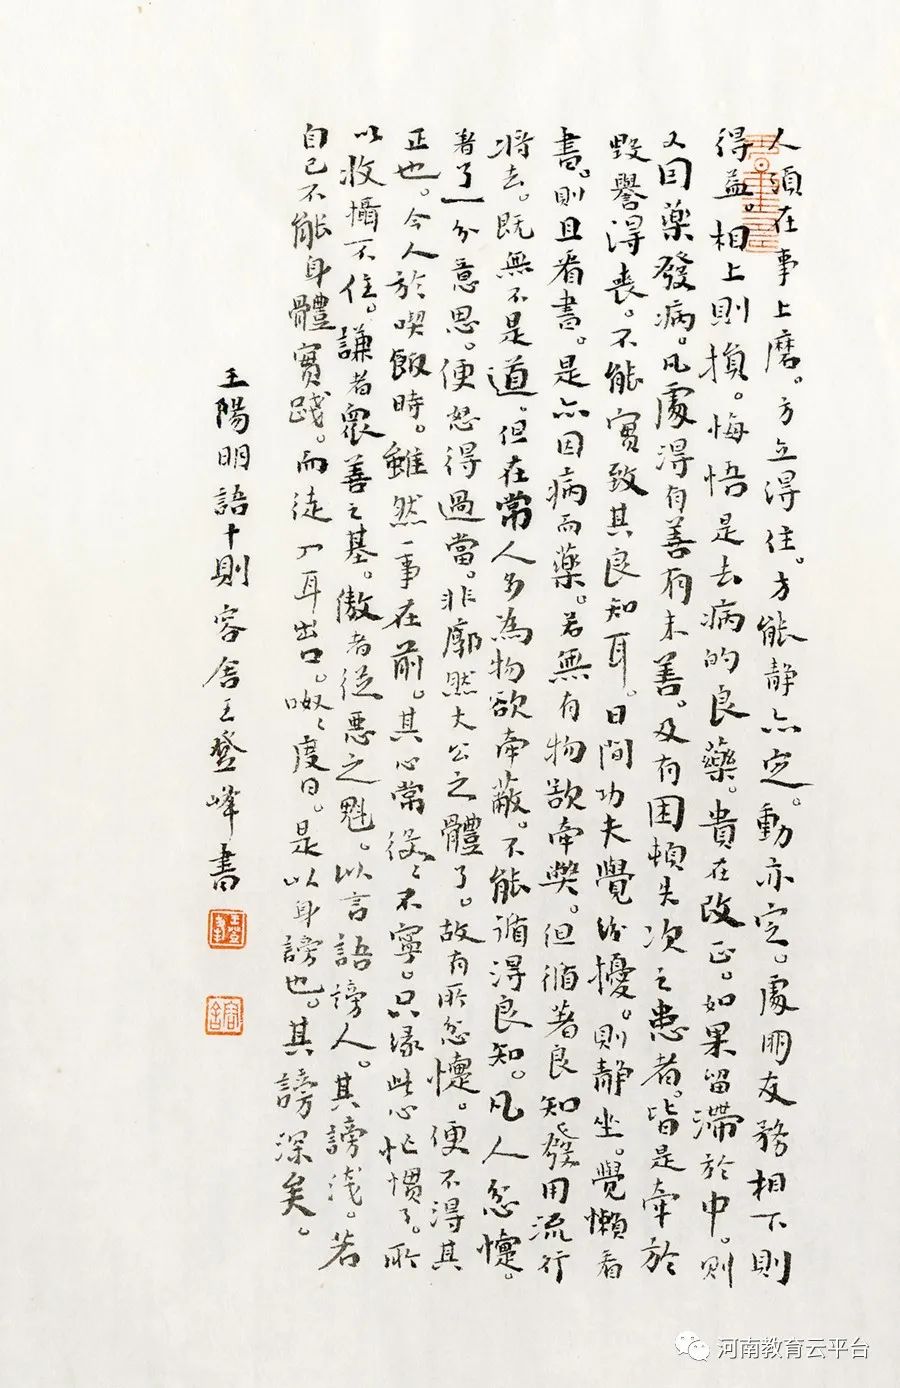 人須在事上磨。方立得住。方能靜亦定。動亦定。處朋友務相下則
得益。相上則損。悔悟是去病的良藥。貴在改正。如果留滯於中。則
又因藥發病。凡處得有善有未善。及有困頓失次之患者。皆是牽於
毀譽得喪。不能實致其良知耳。日間功夫覺紛擾。則靜坐。覺懶看
書。則且看書。是亦因病而藥。若無有物欲牽。但循著良知發用流行
將去。既無不是道。但在常人多為物欲牽蔽。不能循得良知。凡人忿懥。
著了一分意思。便怒得過當。非廓然大公之體了。故有所忿懥。便不得其
正也。今人於喫飯時。雖然一事在前。其心常役〻不寧。只緣此心忙慣了。所
以收攝不住。謙者衆善之基。傲者從惡之魁。以言語謗人。其謗淺。若
自己不能身體實踐。而徒入耳出口。呶〻度日。是以身謗也。其謗深矣。
王陽明語十則容舍王登峰書
王登峰
容舍
河南教育云平台